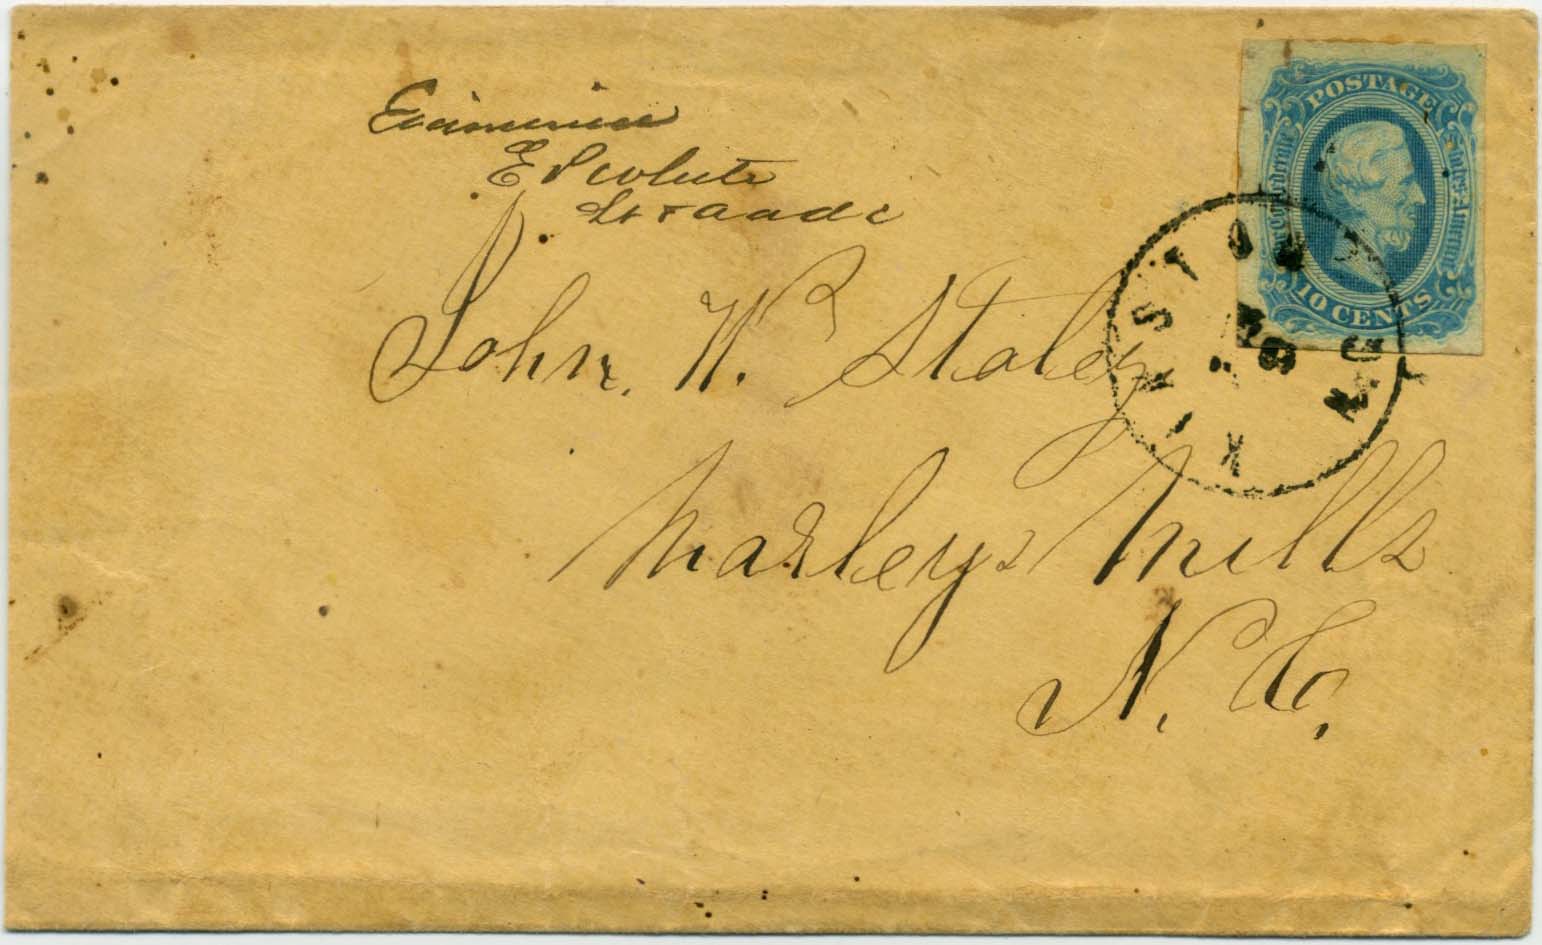 Examined
E P White
Lt & aadc
John. W. Staley
Marleys Mills
N. Co.
POSTAGE
Confederate States of America
10 CENTS
KINSTON N.C.